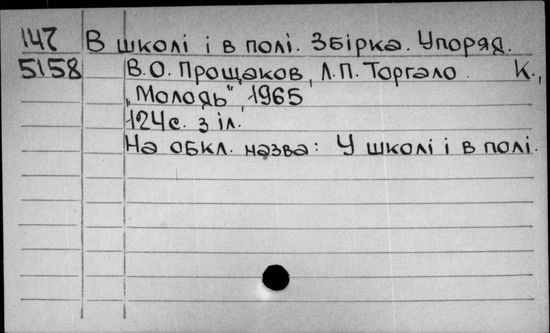 147 В школі і в полі. Збірка. Упоряд.
5158 В.О. Прощаков, Л.П. Торгало. К.,
„Молодь", 1965
124с. з іл.
На обкл. назва: У школі і в полі.